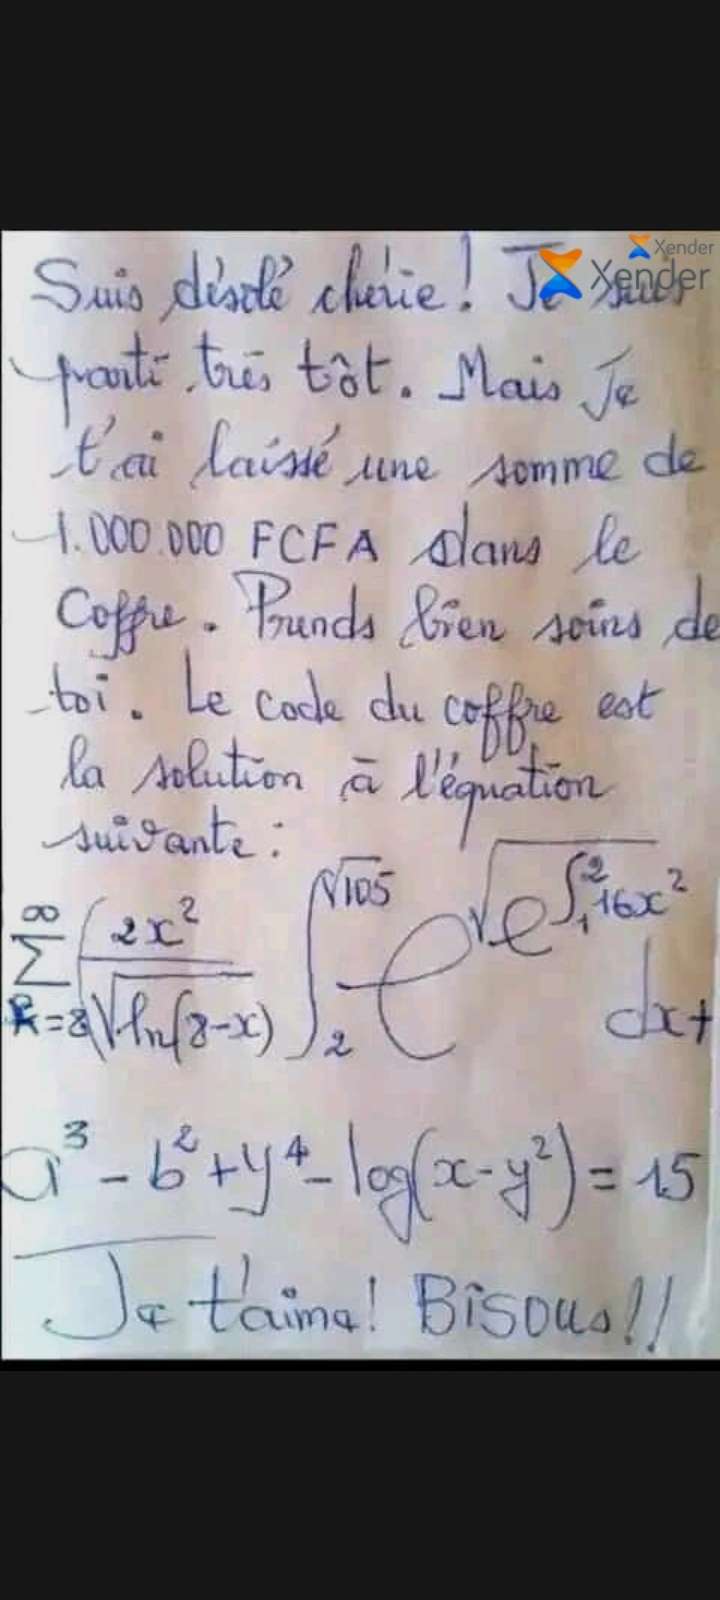 Xender
Xender
Suis désolé chérie! Je suis
parti très tôt. Mais Je
t'ai laissé une somme de
1.000.000 FCFA dans le
Coffre. Prends bien soins de
toi. Le code du coffre est
la solution à l'équation
suivante:
∑_{k=8}^{∞} (2x²/√ln(8-x) ∫_{2}^{√105} e^{√(e^{∫_{1}^{2} 16x²})} dx +
a³ - b² + y⁴ - log(x-y²) = 15
Je t'aime! Bisous!!